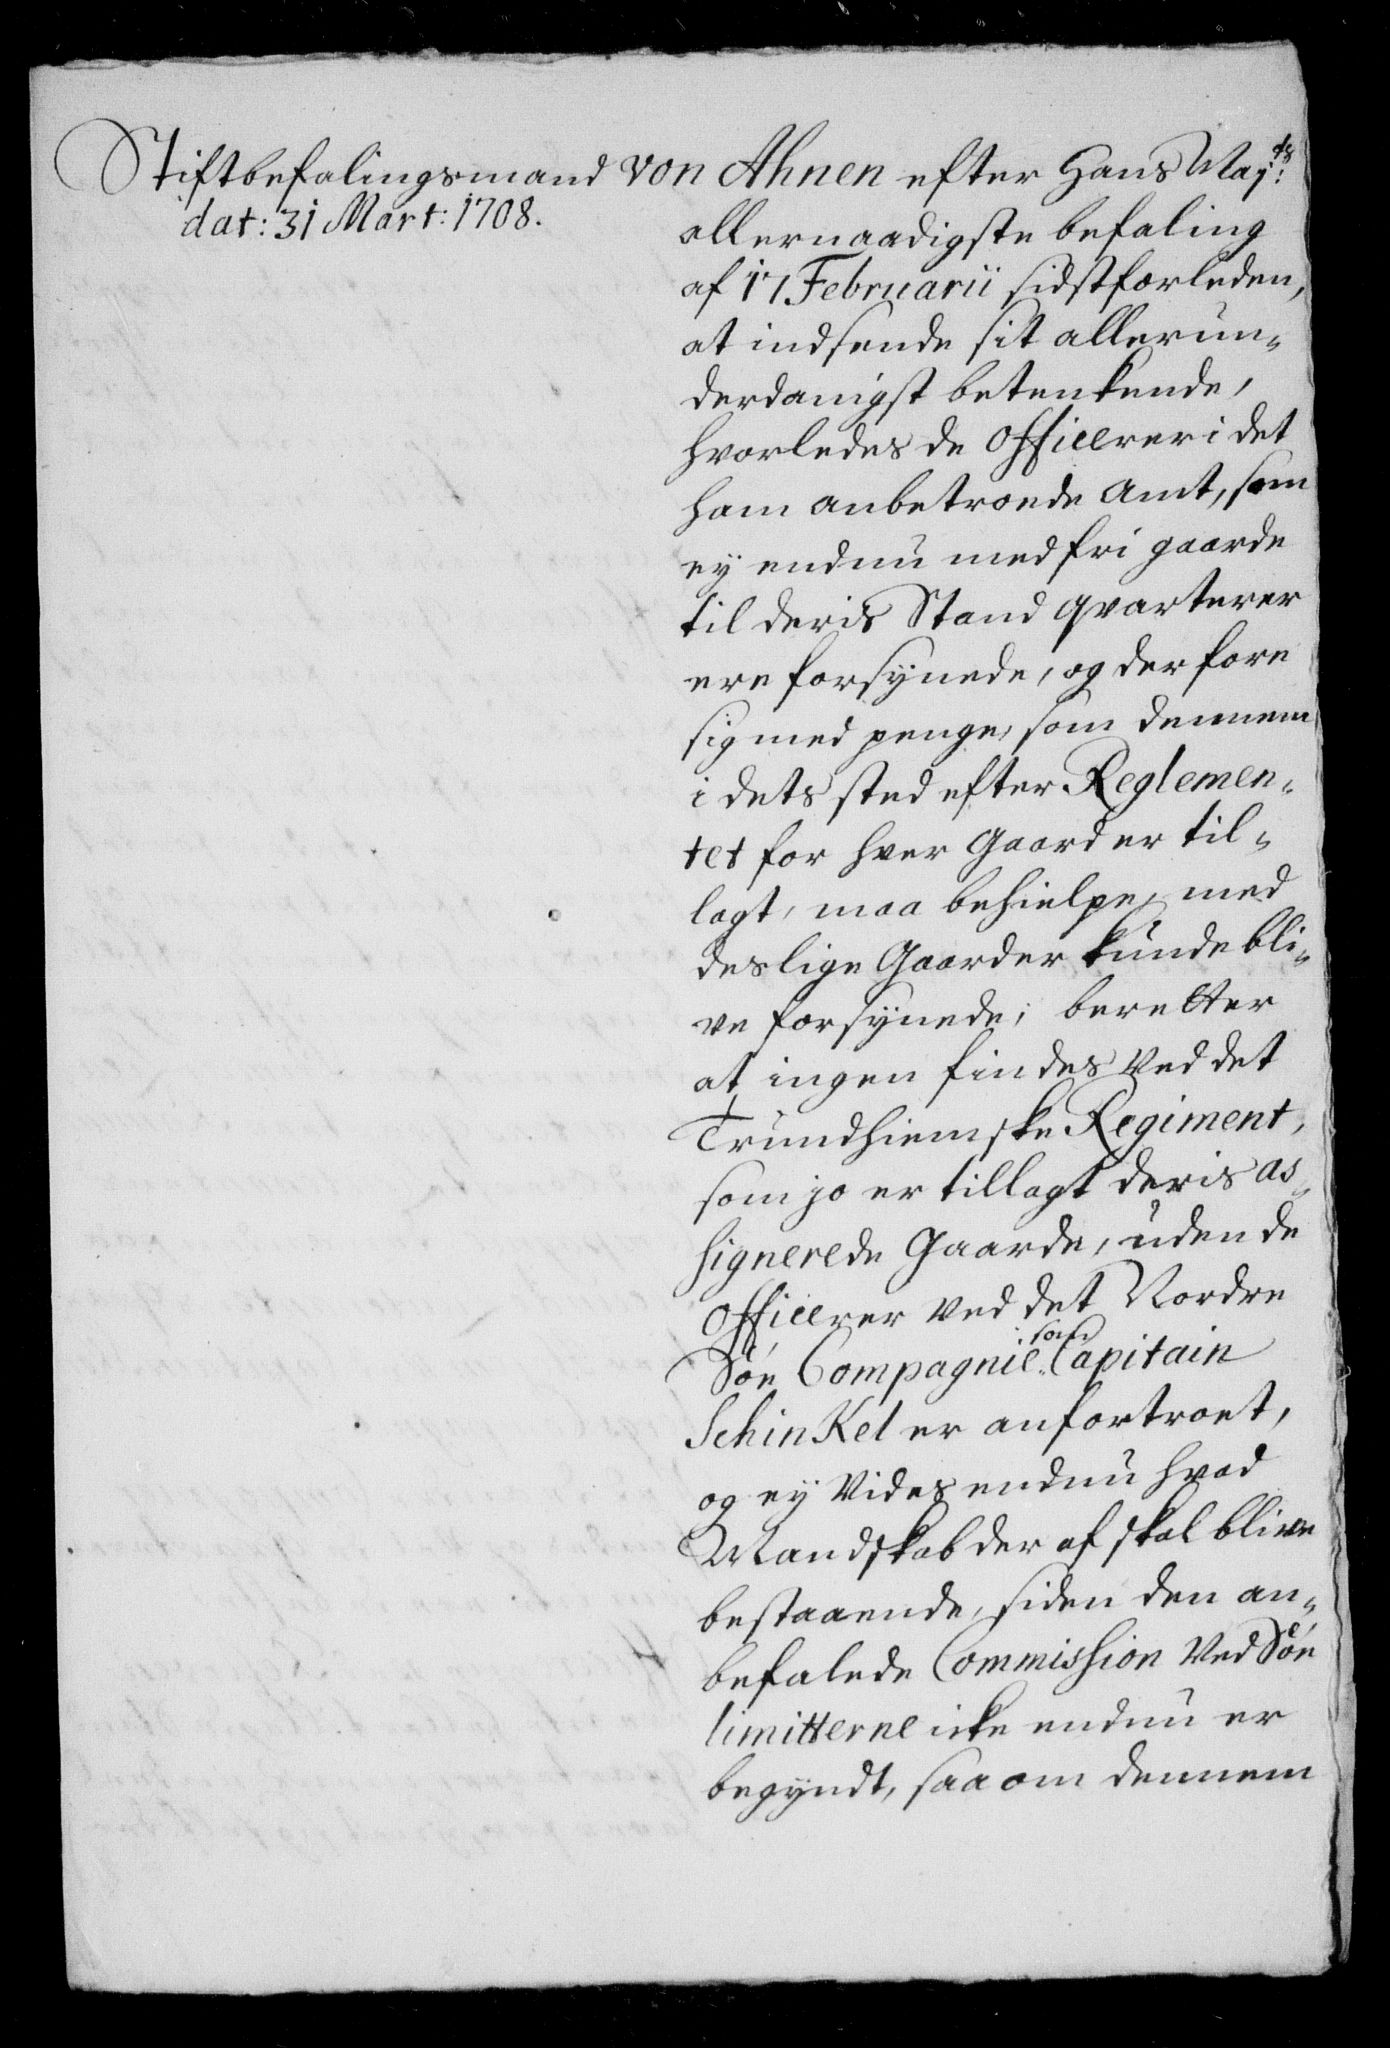 Stiftbefalingsmand von Ahnen efter Hans Maj:ts
dat: 31 Mart: 1708.
allernaadigste befaling
af 17 Februarii sidstforleden,
at indsende sit allerun-
derdanigst betenkende,
hvorledes de Officerer i det
ham anbetroede Amt, som
ey endnu med fri gaarde
til deris Stand qvarterer
ere forsÿnede, og derfore
sig med penge, som dennem
i dets sted efter Reglemen-
tet for hver Gaard er til-
lagt, maa behielpe, med
deslige Gaarder kunde bli-
ve forsÿnede; beretter
at ingen findes ved det
Trundhiemske Regiment,
som jo er tillagt deris as-
signerede Gaarde, uden de
Officerer ved det Nordre
Søe Compagnie som Capitain
Schinkel er anfortroet,
og ey Vides endnu hvad
Mandskab der af skal blive
bestaaende, siden den an-
befalede Commission Ved Søe
limitterne icke endnu er
begÿndt, saa om dennem